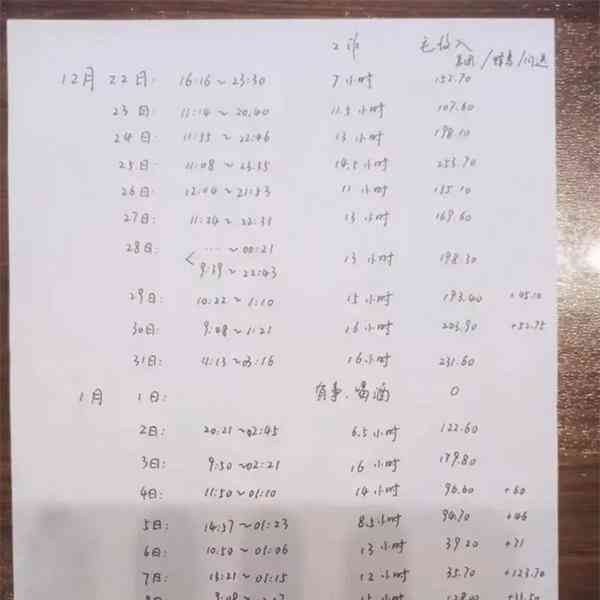 工作 毛收入
美团/蜂鸟/闪送
12月 22日: 16:16~23:30 7小时 152.70
23日: 11:14~20:40 11.5小时 107.60
24日: 11:35~22:46 13小时 198.10
25日: 11:08~23:35 14.5小时 253.70
26日: 12:04~21:53 11小时 135.10
27日: 11:24~22:31 13小时 169.60
28日: ...~00:21
9:39~22:43 13小时 198.30
29日: 10:22~1:10 15小时 193.40 +45.10
30日: 9:08~1:21 16小时 203.90 +52.75
31日: 11:13~03:16 16小时 231.60
1月 1日: 有事、喝酒 0
2日: 20:21~02:45 6.5小时 122.60
3日: 9:50~02:21 16小时 179.80
4日: 11:50~01:10 14小时 96.60 +60
5日: 14:37~01:23 8.5小时 94.70 +46
6日: 10:50~01:06 13小时 39.20 +71
7日: 13:21~01:15 12小时 35.70 +123.70